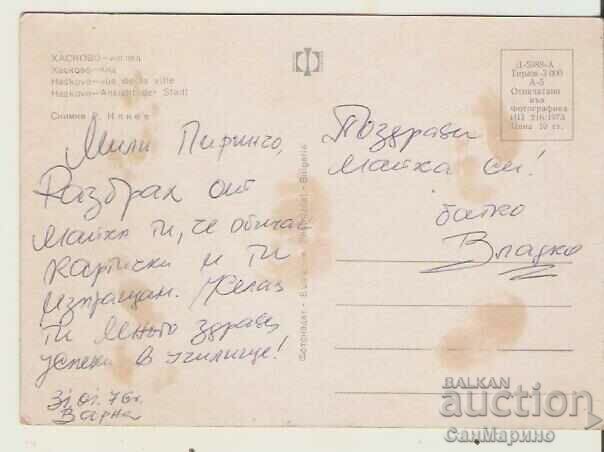 ХАСКОВО—изглед
Хасково—Вид
Haskovo—Vue de la ville
Haskovo—Ansicht der Stadt
Снимка Р. Илиев
Мили Пиринчо,
Разбрах от
майка ти, че обичаш
картички и ти
изпращам. Желая
ти много здраве,
успехи в училище!
31.01.76г.
Варна
Фотоиздат - Bulgaria
Д-5988-А
Тираж 3 000
А-5
Отпечатано
във
Фотографика
ИП 216/1973
Цена 10 ст.
Поздрави
майка си!
батко
Владко
BALKAN
auction
СанМарино